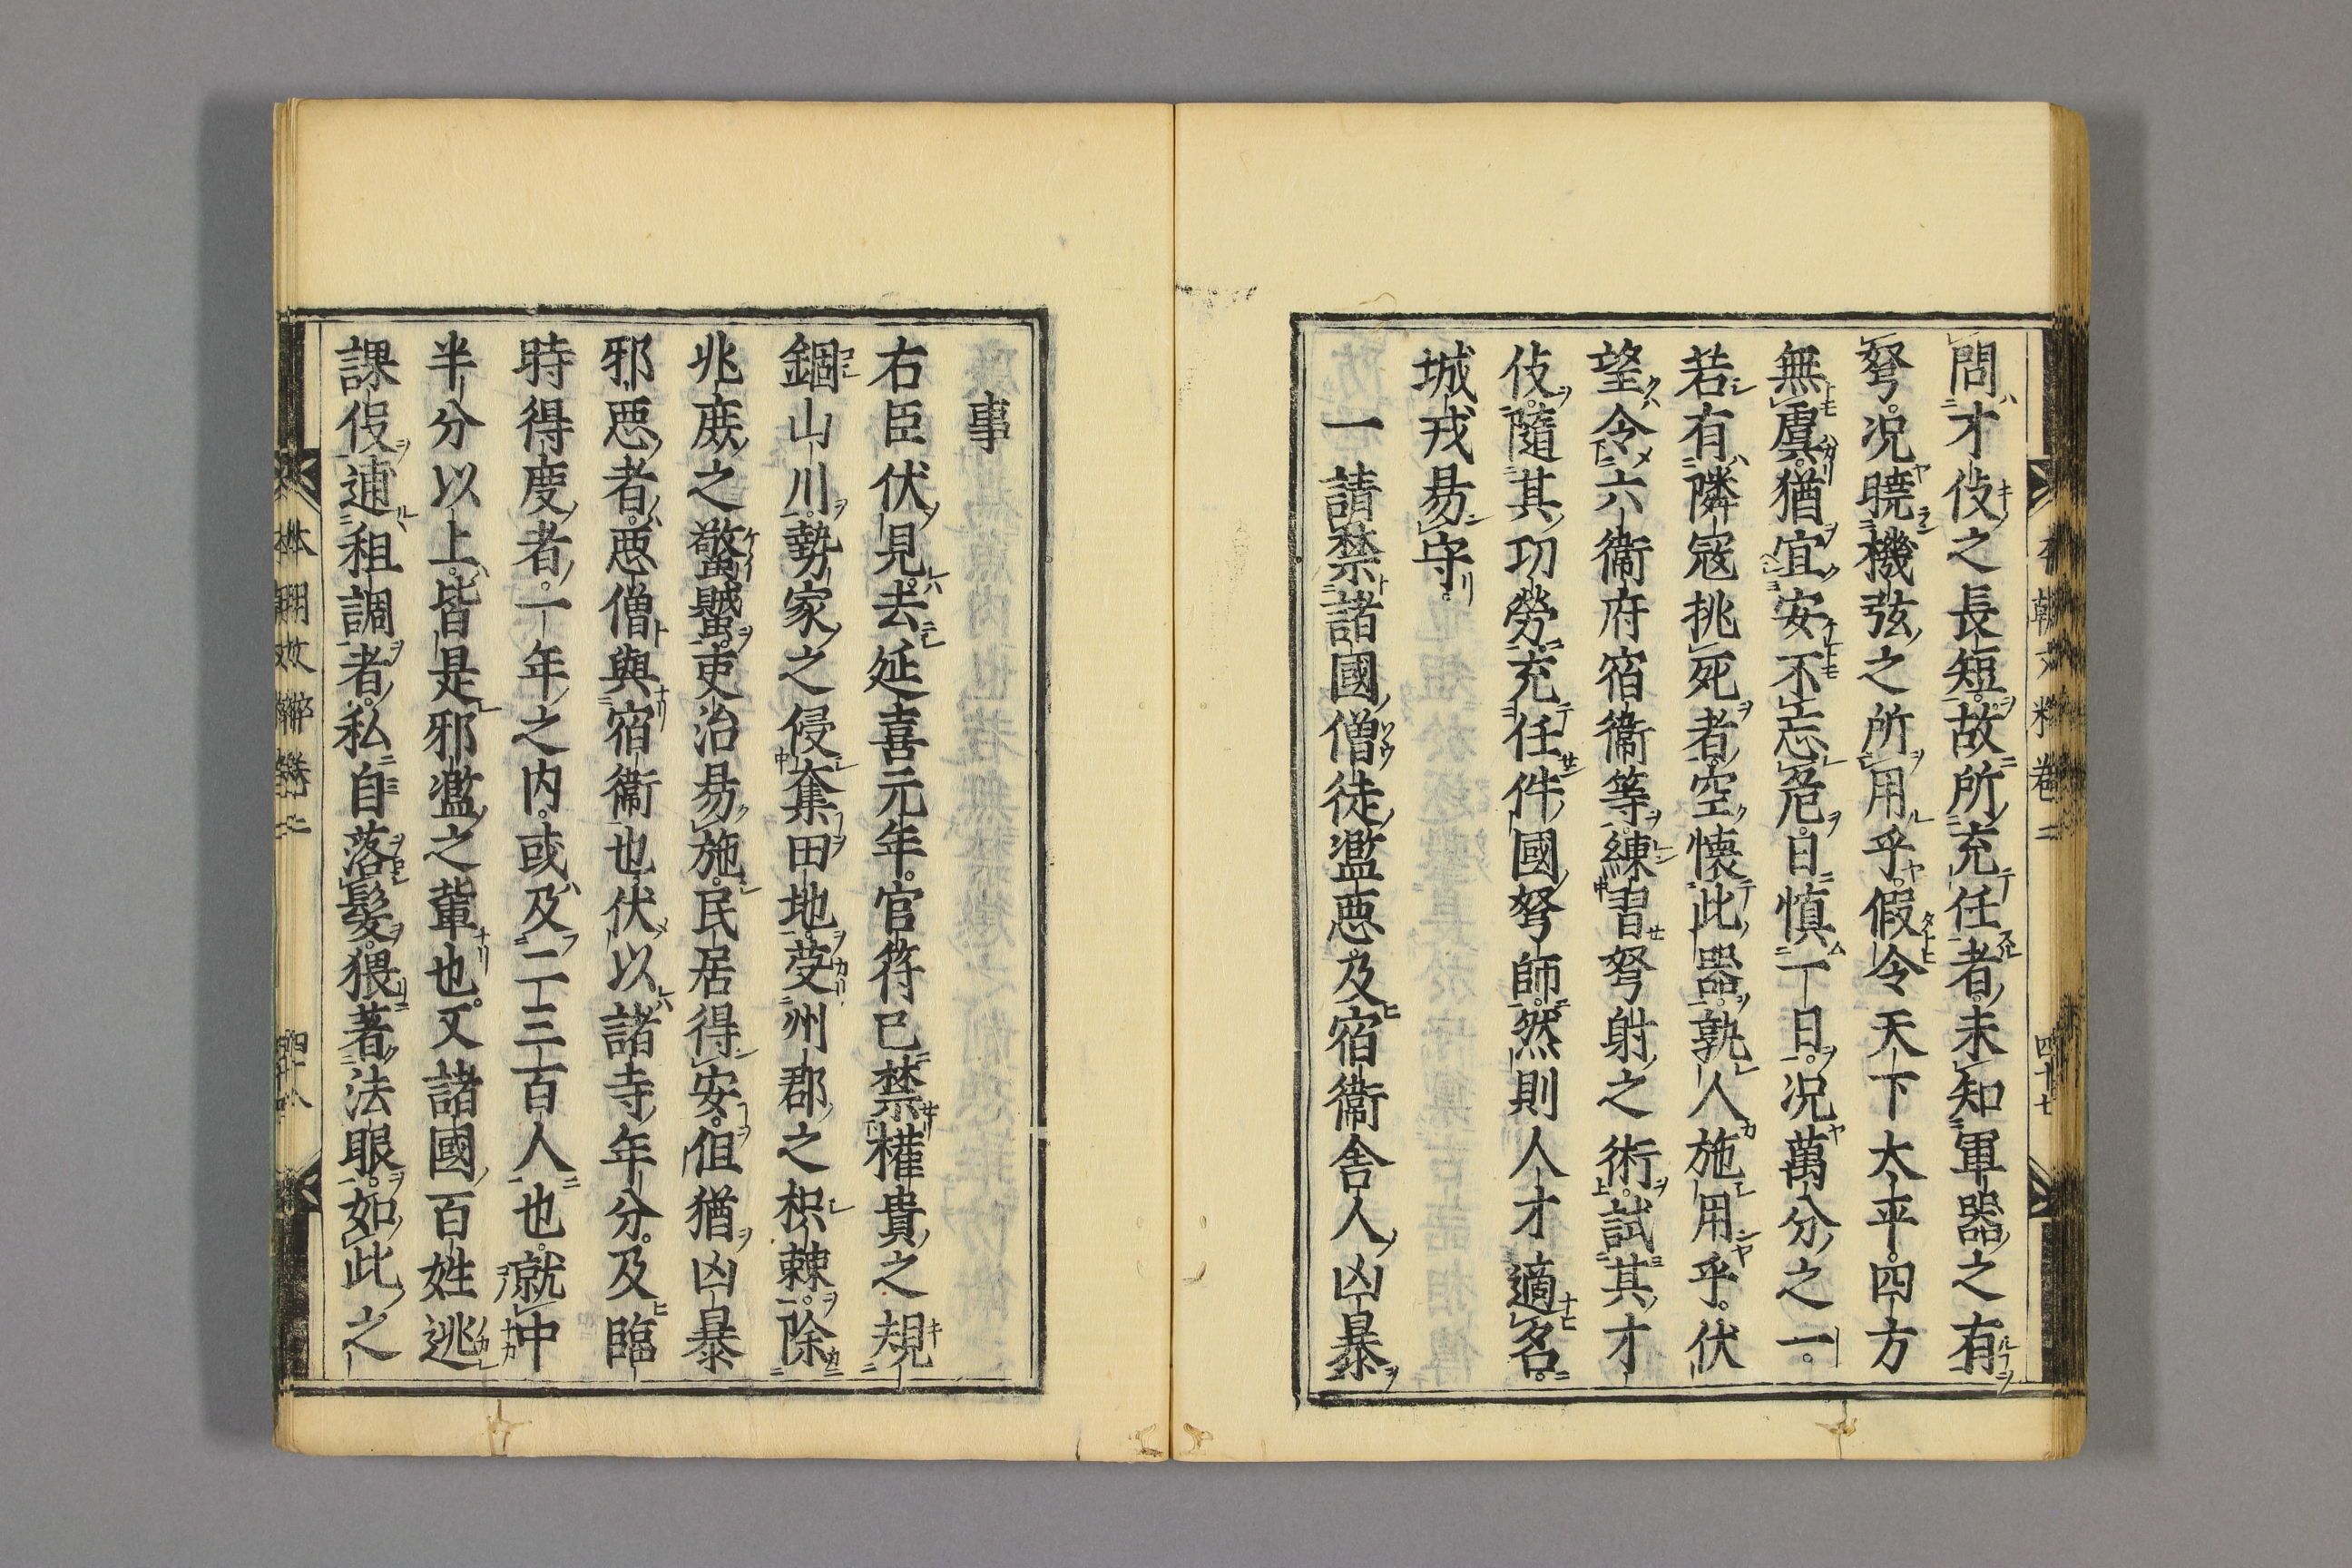 問才伎之長短故所充任者未知軍器之有
弩況曉機弦之所用乎假令天下太平四方
無虞猶宜安不忘危日愼一日況萬分之一
若有隣寇挑死者空懷此器孰人施用乎伏
望令六衞府宿衞等練習弩射之術試其才
伎隨其功勞充任件國弩師然則人才適名
城戎易守
一請禁諸國僧徒濫惡及宿衞舍人凶暴
本朝文粹卷二
四十七
事
右臣伏見去延喜元年官符已禁權貴之規
錮山川勢家之侵奪田地芟州郡之枳棘除
兆庶之蝥賊吏治易施民居得安但猶凶暴
邪惡者惡僧與宿衞也伏以諸寺年分及臨
時得度者一年之内或及二三百人也就中
半分以上皆是邪濫之輩也又諸國百姓逃
課役逋租調者私自落髮猥著法眼如此之
本朝文粹卷二
四十八